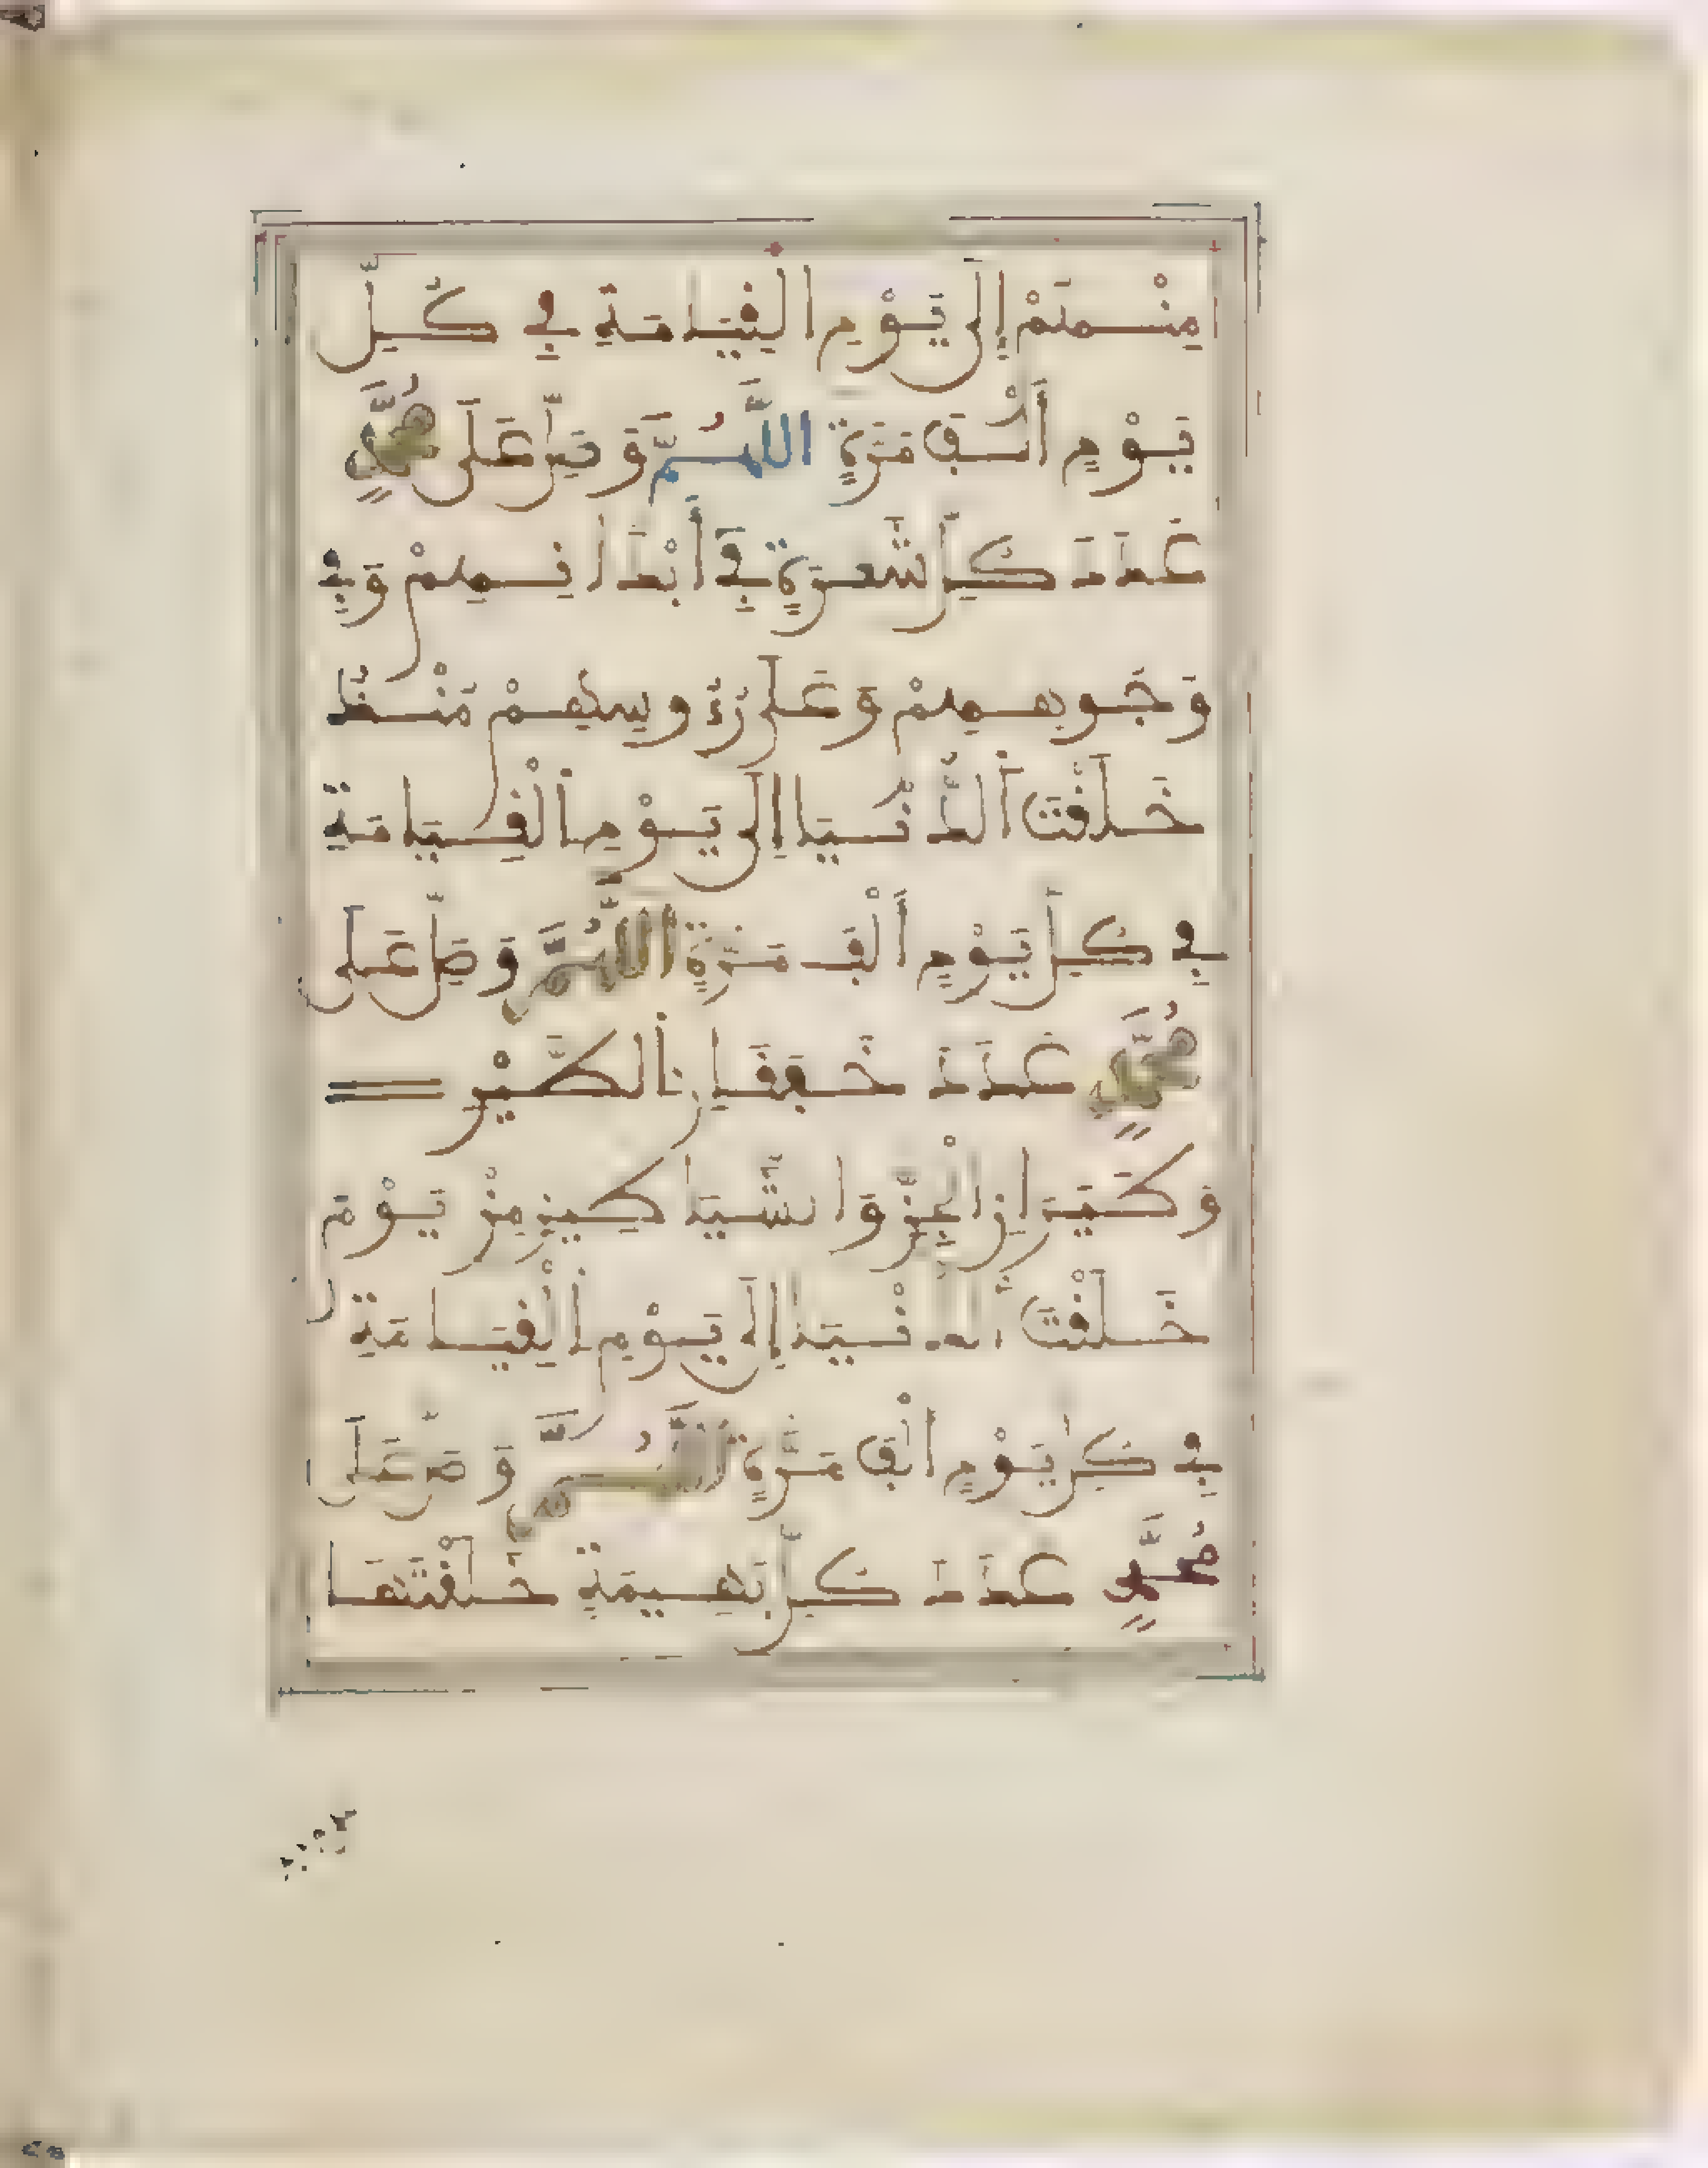 مِنْهُمْ إِلَى يَوْمِ الْقِيَامَةِ فِي كُلِّ
يَوْمٍ أَلْفَ مَرَّةٍ اللَّهُمَّ وَصَلِّ عَلَى مُحَمَّدٍ
عَدَدَ كُلِّ شَعْرَةٍ فِي أَبْدَانِهِمْ وَفِي
وُجُوهِهِمْ وَعَلَى رُءُوسِهِمْ مُنْذُ
خَلَقْتَ الدُّنْيَا إِلَى يَوْمِ الْقِيَامَةِ
فِي كُلِّ يَوْمٍ أَلْفَ مَرَّةٍ اللَّهُمَّ وَصَلِّ عَلَى
مُحَمَّدٍ عَدَدَ خَفَقَانِ الطَّيْرِ
وَطَيَرَانِ الْجِنِّ وَالشَّيَاطِينِ مِنْ يَوْمَ
خَلَقْتَ الدُّنْيَا إِلَى يَوْمِ الْقِيَامَةِ
فِي كُلِّ يَوْمٍ أَلْفَ مَرَّةٍ اللَّهُمَّ وَصَلِّ عَلَى
مُحَمَّدٍ عَدَدَ كُلِّ بَهِيمَةٍ خَلَقْتَهَا